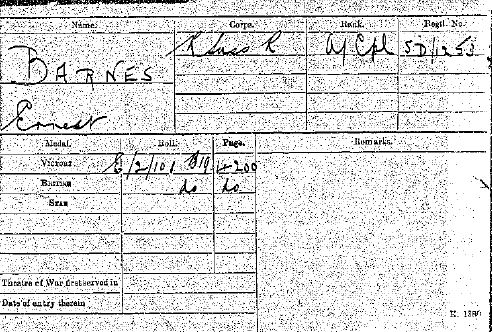 Name. Corps. Rank. Regtl. No.
BARNES R Suss R A/Cpl SD/1253
Ernest
Medal. Roll. Page. Remarks.
Victory E/2/101 B19 4200
British do do
Star
Theatre of War first served in
Date of entry therein
K. 1380